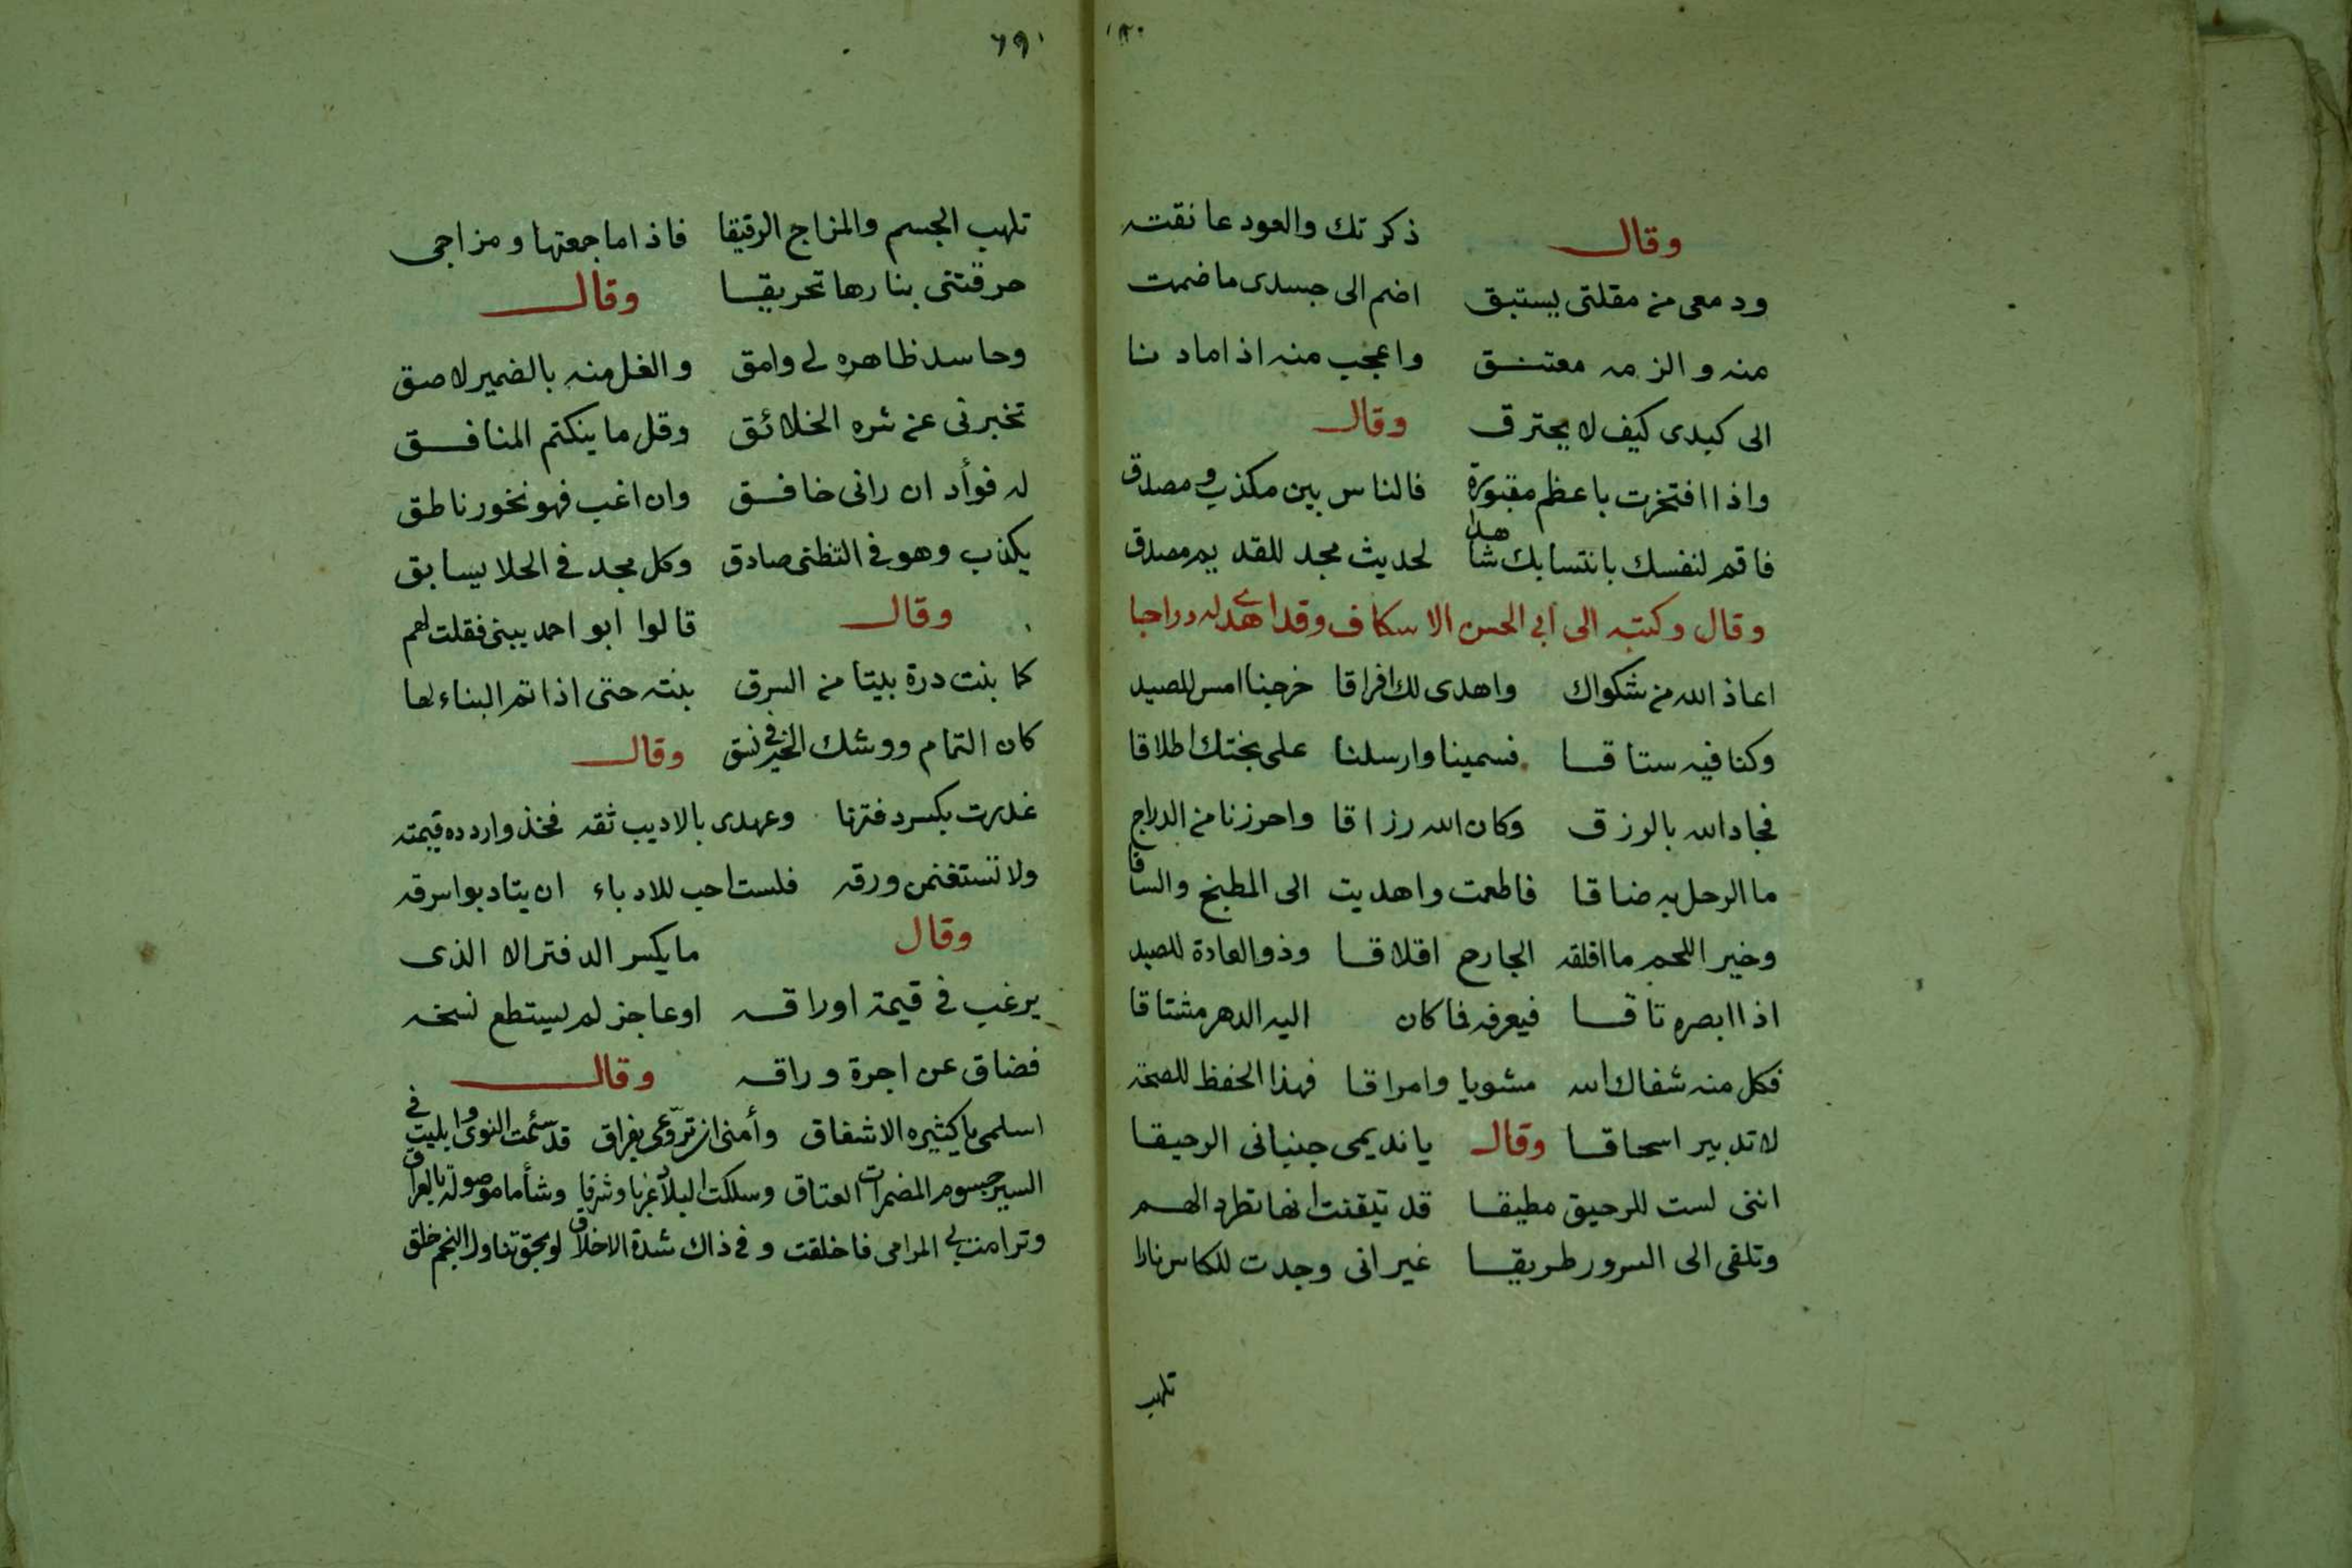 ١٢٠
وقال ذكرتك والعود عانقته
ودمعى من مقلتى يستبق اضم الى جسدى ما ضمت
منه والزمه معتنق واعجب منه اذا ما دنا
الى كبدى كيف لا يحترق وقال
واذا افتخرت باعظم مقبورة فالناس بين مكذب ومصدق
فاقم لنفسك بانتسابك شاهدا لحديث مجد للقديم مصدق
وقال وكتبه الى ابى الحسن الاسكاف وقد اهدى له دراجا
اعاذ الله من شكواك واهدى لك افراقا خرجنا امس للصيد
وكنا فيه ستاقا فسمينا وارسلنا على بختك اطلاقا
فجاد الله بالرزق وكان الله رزاقا واحرزنا من الدراج
ما الرحل به ضاقا فاطعمت واهديت الى المطبخ والساقا
وخير اللحم ما اقلقه الجارح اقلاقا وذو العادة للصيد
اذا ابصره تاقا فيعرفه فما كان اليه الدهر مشتاقا
فكل منه شفاك الله مشويا وامراقا فهذا الحفظ للصحة
لا تدبير اسحاقا وقال يا نديمى جنبانى الرحيقا
اننى لست للرحيق مطيقا قد تيقنت انها تطرد الهم
وتلقى الى السرور طريقا غير انى وجدت للكاس نارا
تلهب
تلهب الجسم والمزاج الرقيقا فاذا ما جمعتها ومزاجى
حرقتنى بنارها تحريقا وقال
وحاسد ظاهره لى وامق والغل منه بالضمير لاصق
تخبرنى عن شره الخلائق وقل ما ينكتم المنافق
له فوأد ان رانى خافق وان اغب فهو نخور ناطق
يكذب وهو فى التظنى صادق وكل مجد فى الحلا يسابق
وقال قالوا ابو احمد يبنى فقلت لهم
كما بنت درة بيتا من السرق بنته حتى اذا تم البناء لها
كان التمام ووشك الخير فى نسق وقال
غدرت بكسر دفترنا وعهدى بالاديب ثقه فخذ واردده قيمته
ولا تستغنمن ورقه فلست احب للادباء ان يتادبوا سرقه
وقال ما يكسر الدفتر الا الذى
يرغب فى قيمة اوراقه او عاجز لم يستطع نسخه
فضاق عن اجرة وراقه وقال
اسلمى يا كثيره الاشفاق وأمنى ان تروّعى بفراق قد سئمت النوى وابليت فى
السير جسوم المضمرات العتاق وسلكت البلاد غربا وشرقا وشأما موصولة بالعراق
وترامت بى المرامى فاخلقت وفى ذاك شدة الاخلاق لو بحق تناول النجم خلق